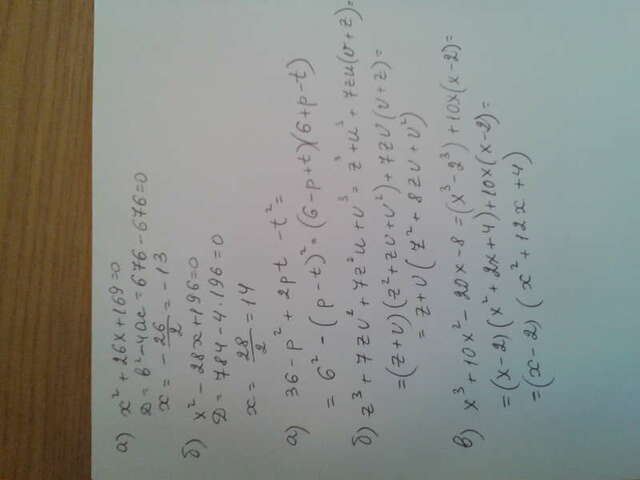 а) x² + 26x + 169 = 0
D = b² - 4ac = 676 - 676 = 0
x = - 26/2 = - 13
б) x² - 28x + 196 = 0
D = 784 - 4·196 = 0
x = 28/2 = 14
а) 36 - p² + 2pt - t² =
= 6² - (p - t)² = (6 - p + t)(6 + p - t)
б) z³ + 7zv² + 7z²u + v³ = z³ + u³ + 7zu(v + z) =
= (z + v)(z² + zv + v²) + 7zv(v + z) =
= z + v (z² + 8zv + v²)
в) x³ + 10x² - 20x - 8 = (x³ - 2³) + 10x(x - 2) =
= (x - 2)(x² + 2x + 4) + 10x(x - 2) =
= (x - 2)(x² + 12x + 4)